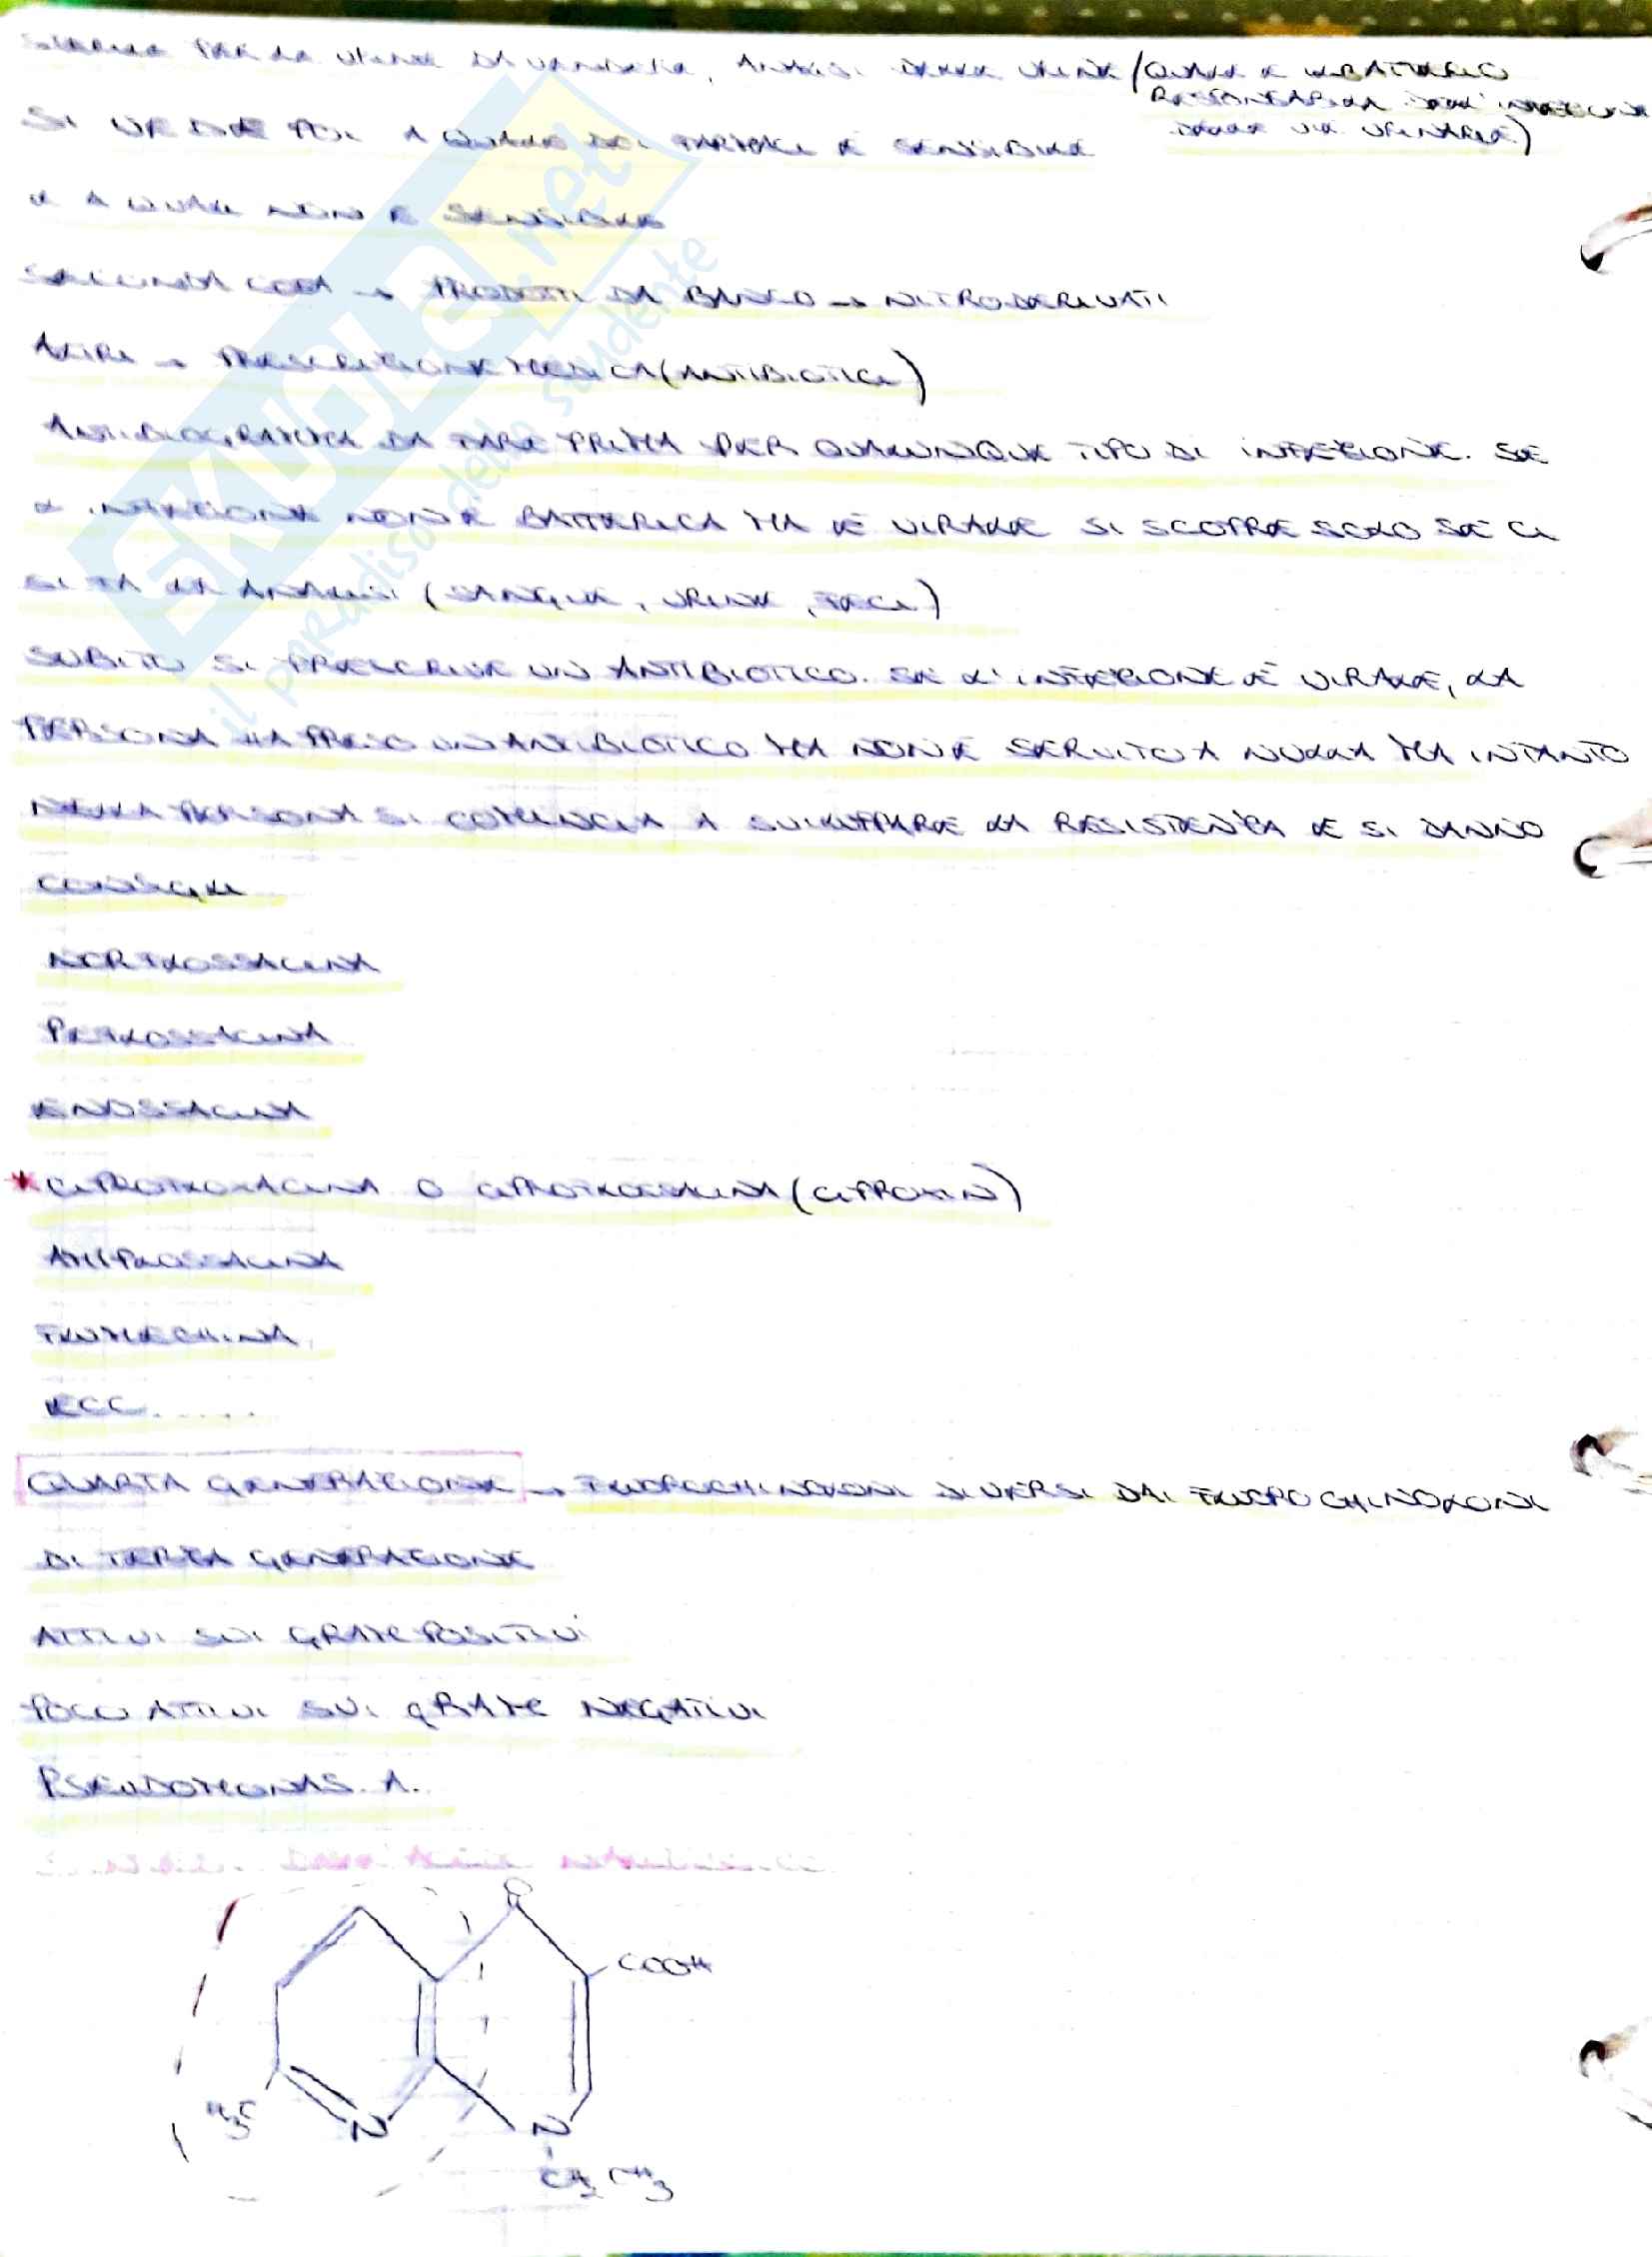 PER LE URINE, ANALISI DELLE URINE (QUALE È IL BATTERIO
RESPONSABILE DELL'INFEZIONE
DELLE VIE URINARIE)
SI VEDE POI A QUALE DEI FARMACI È SENSIBILE
E A QUALE NON È SENSIBILE
SECONDA COSA → PRODOTTI DA BANCO → NITRODERIVATI
ALTRI → PRESCRIZIONE MEDICA (ANTIBIOTICI)
ANTIBIOGRAMMA DA FARE PRIMA PER QUALUNQUE TIPO DI INFEZIONE. SE
L'INFEZIONE NON È BATTERICA MA È VIRALE SI SCOPRE SOLO SE CI
SI FA LE ANALISI (SANGUE, URINE, FECI)
SUBITO SI PRESCRIVE UN ANTIBIOTICO. SE L'INFEZIONE È VIRALE, LA
PERSONA HA PRESO UN ANTIBIOTICO MA NON È SERVITO A NULLA MA INTANTO
NELLA PERSONA SI COMINCIA A SVILUPPARE LA RESISTENZA E SI DANNO
CONSIGLI
NORFLOSSACINA
PEFLOSSACINA
ENOSSACINA
* CIPROFLOXACINA O CIPROFLOSSACINA (CIPROXIN)
AMIFLOSSACINA
FLUMECHINA
ECC......
QUARTA GENERAZIONE → FLUOROCHINOLONI DIVERSI DAI FLUOROCHINOLONI
DI TERZA GENERAZIONE
ATTIVI SUI GRAM POSITIVI
POCO ATTIVI SUI GRAM NEGATIVI
PSEUDOMONAS A.
O
COOH
H3C
N
N
CH2CH3
SKUOLA.net
il paradiso dello studente